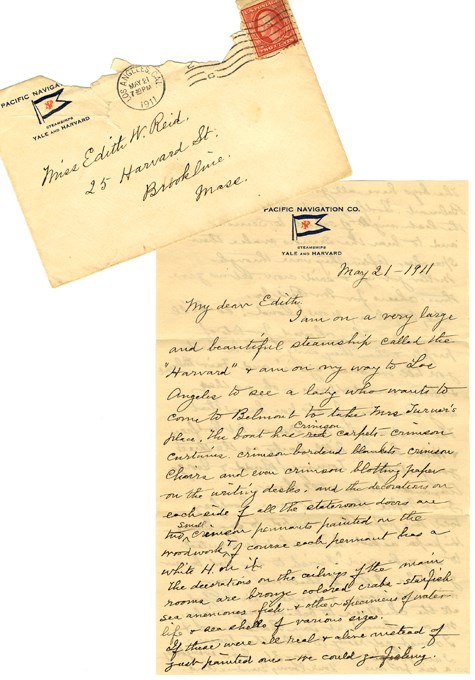 PACIFIC NAVIGATION
STEAMSHIPS
YALE AND HARVARD
LOS ANGELES, CAL.
MAY 21
7 PM
1911
U.S. POSTAGE
Miss Edith W. Reid.
25 Harvard St.
Brookline.
Mass.
PACIFIC NAVIGATION CO.
STEAMSHIPS
YALE AND HARVARD
May 21-1911
My dear Edith
I am on a very large
and beautiful steamship called the
"Harvard" & am on my way to Los
Angeles to see a lady who wants to
come to Belmont to take Mrs Turner's
place. The boat has red crimson carpets crimson
curtains. crimson bordered blankets crimson
chairs and even crimson blotting paper
on the writing desks. and the decorations on
each side of all the stateroom doors are
two small crimson pennants painted on the
woodwork & of course each pennant has a
white H. on it
The decorations on the ceilings of the main
rooms are bronze colored crabs - starfish
sea anemones - fish - & other specimens of water
life & sea shells of various sizes.
If these were all real & alive instead of
just painted ones - we could go fishing.